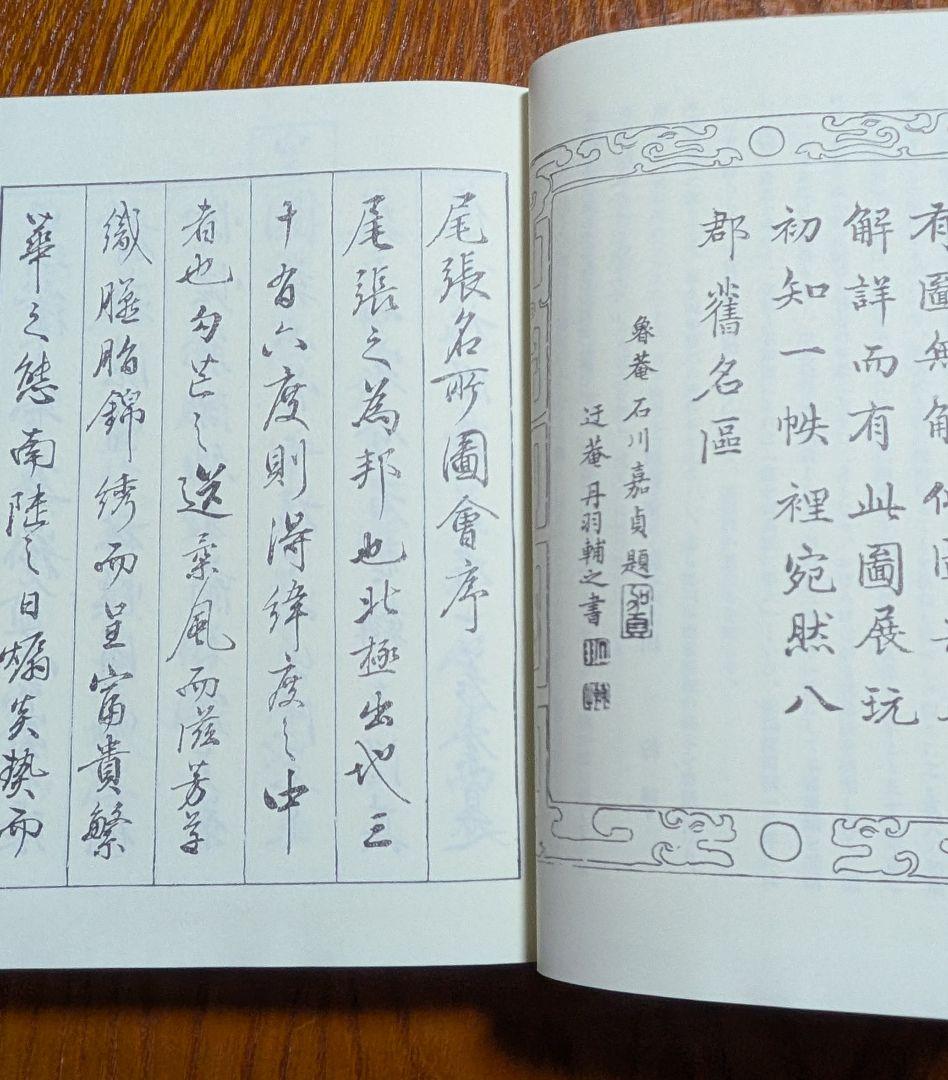 有圖無解
解詳而有此圖展玩
初知一帙裡宛然八
郡舊名區
魯菴石川嘉貞題
迂菴丹羽輔之書
尾張名所圖會序
尾張之為邦也北極出地三
十有六度則得緯度之中
者也勾芒之送柔風而滋芳草
織臙脂錦綉而呈富貴繁
華之態南陸之日爀炎熱而